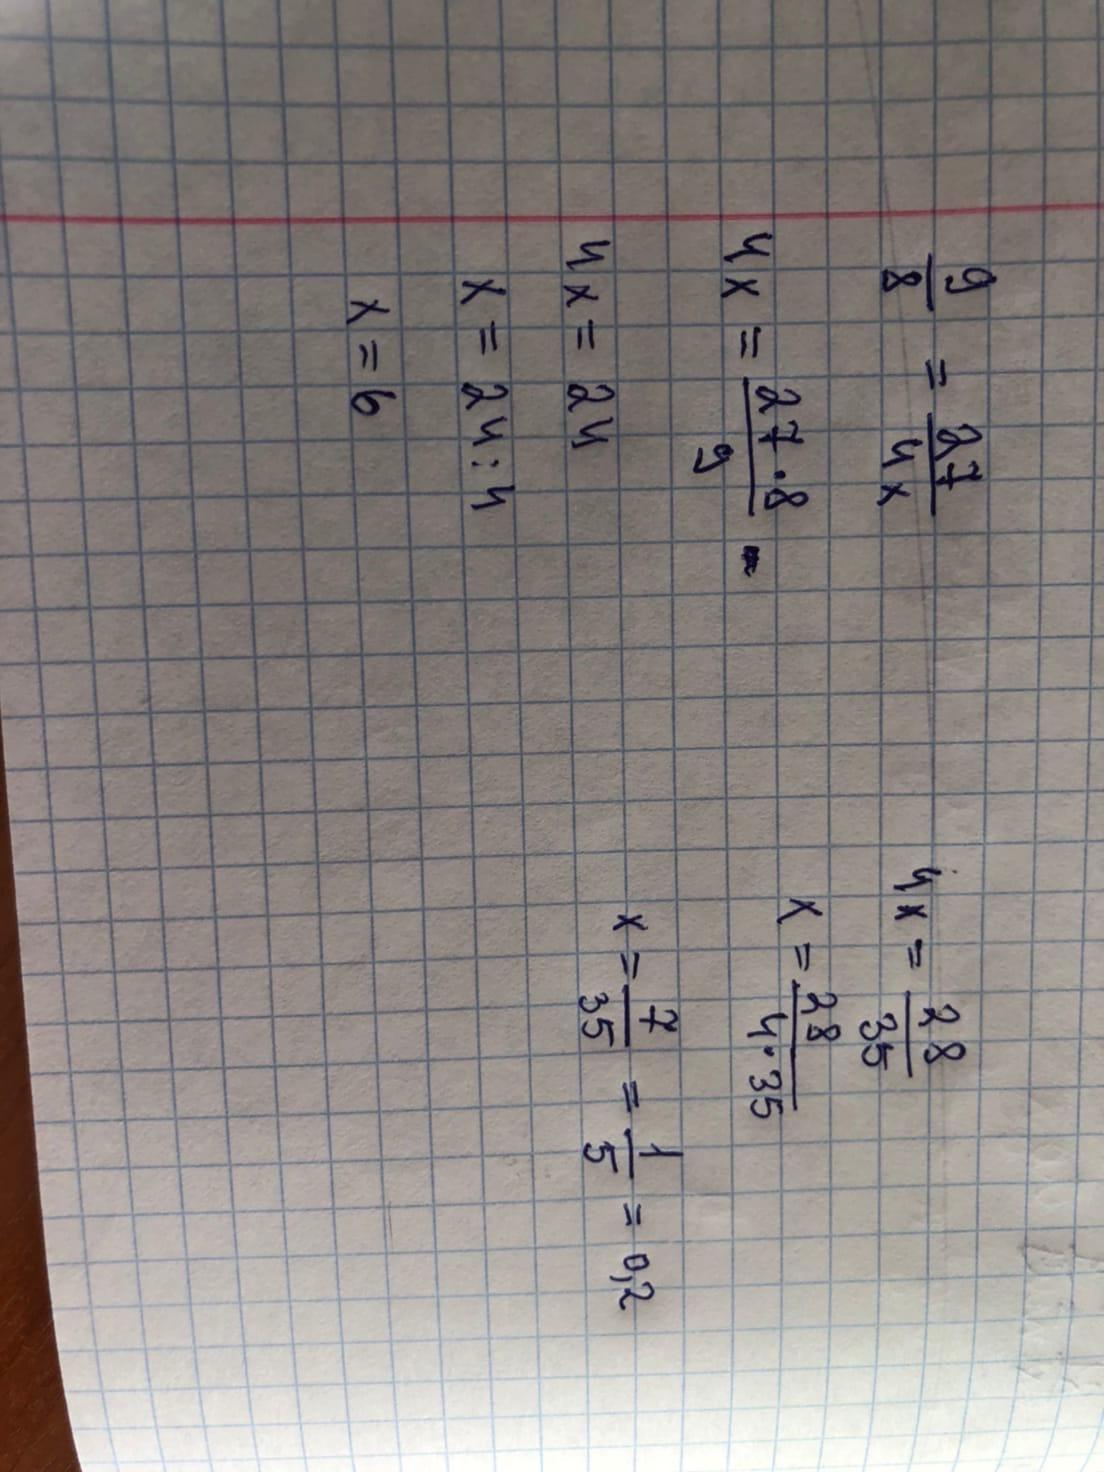 9/8 = 27/4x
4x = 27·8/9
4x = 24
x = 24:4
x = 6
4x = 28/35
x = 28/4·35
x = 7/35 = 1/5 = 0,2